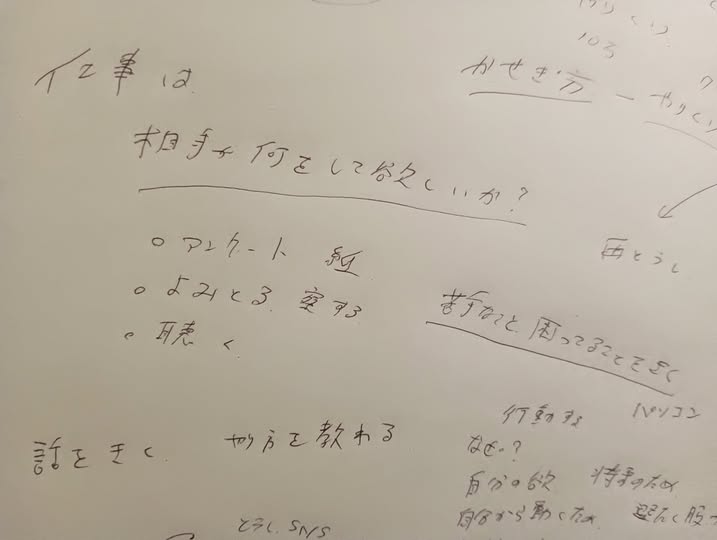 やりくり
103
かせぎ方 ー やりくり
仕事は
相手が何をして欲しいか?
○ アンケート 紙
○ よみとる 察する
○ 聴く
苦手なこと 困ってることをきく
話をきく やり方を教わる
行動する パソコン
なぜ?
自分の欲 将来のため
自分から動くため
SNS